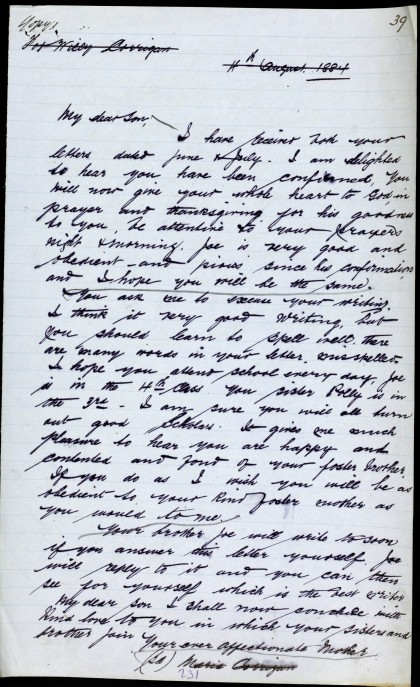 (Copy)
39
For Willy Corrigan
11th August 1884
My dear Son,
I have receivd both your
letters dated June & July. I am delighted
to hear you have been confirmed, You
will now give your whole heart to God in
prayer and thanksgiving for his goodness
to you, be attentive to your prayers
night & morning. Joe is very good and
obedient and pious since his confirmation
and I hope you will be the same.
You ask me to excuse your writing.
I think it very good writing, but
you should learn to spell well. there
are many words in your letter misspelled
I hope you attend school every day, Joe
is in the 4th Class you sister Polly is in
the 3rd. I am sure you will all turn
out good Scholars. It gives me much
pleasure to hear you are happy and
contented and fond of your foster Mother
If you do as I wish you will be as
obedient to your kind foster mother as
you would to me.
Your brother Joe will write to soon
if you answer this letter yourself. Joe
will reply to it and you can then
see for yourself which is the best writer
My dear son I shall now conclude with
kind love to you in which your sisters and
brother join
Your ever affectionate Mother
(sd) Maria Corrigan
231